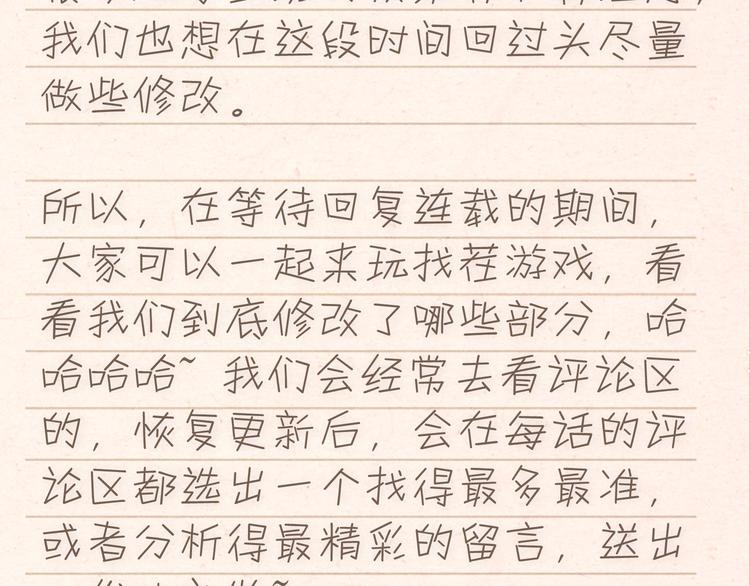 我们也想在这段时间回过头尽量
做些修改。
所以，在等待回复连载的期间，
大家可以一起来玩找茬游戏，看
看我们到底修改了哪些部分，哈
哈哈哈~ 我们会经常去看评论区
的，恢复更新后，会在每话的评
论区都选出一个找得最多最准，
或者分析得最精彩的留言，送出